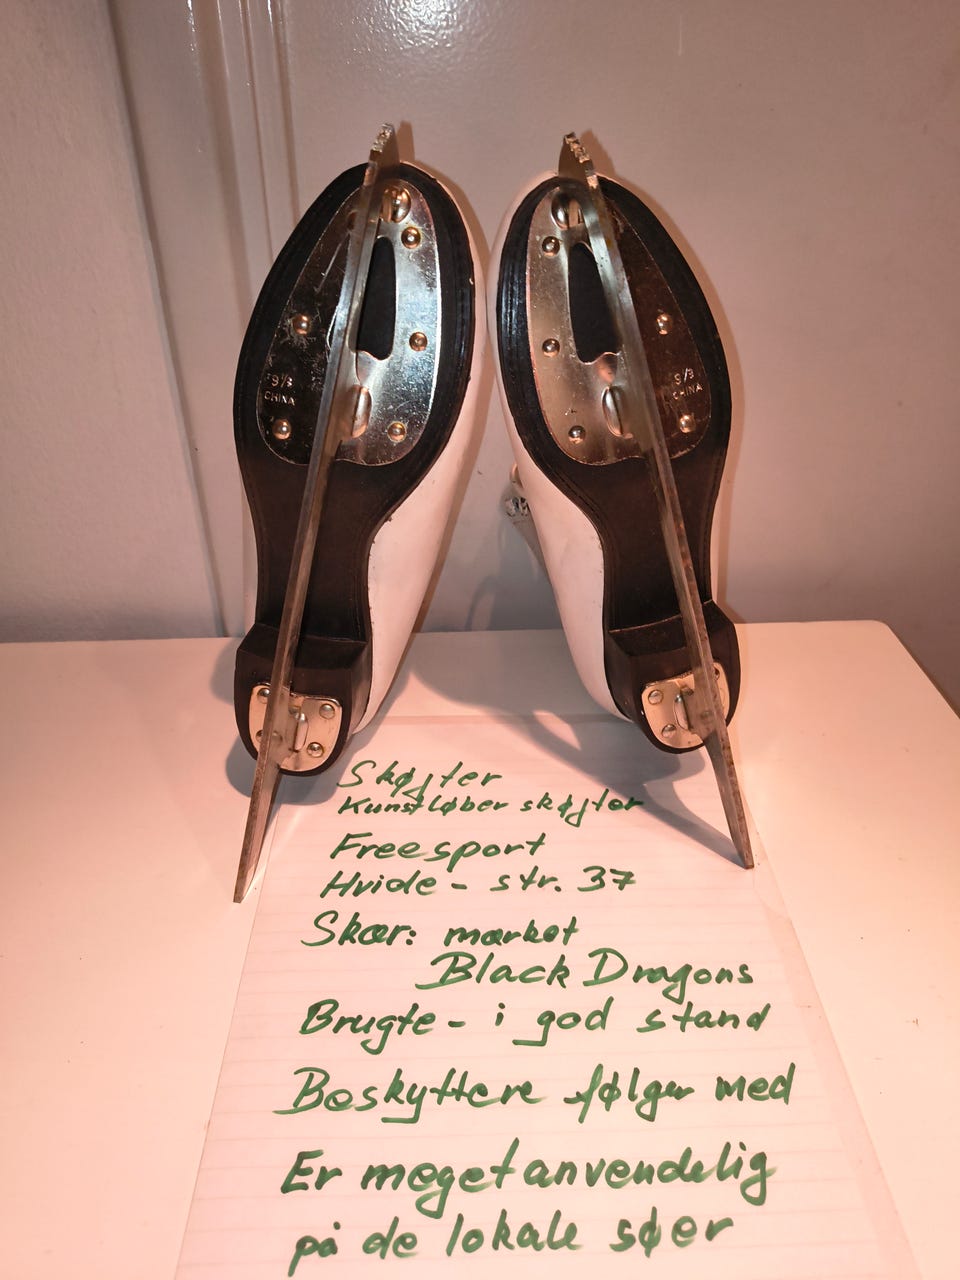 9 1/3
CHINA
9 1/3
CHINA
Skøjter
Kunstløber skøjter
Freesport
Hvide - str. 37
Skær: mærket
Black Dragons
Brugte - i god stand
Beskyttere følger med
Er meget anvendelig
på de lokale søer